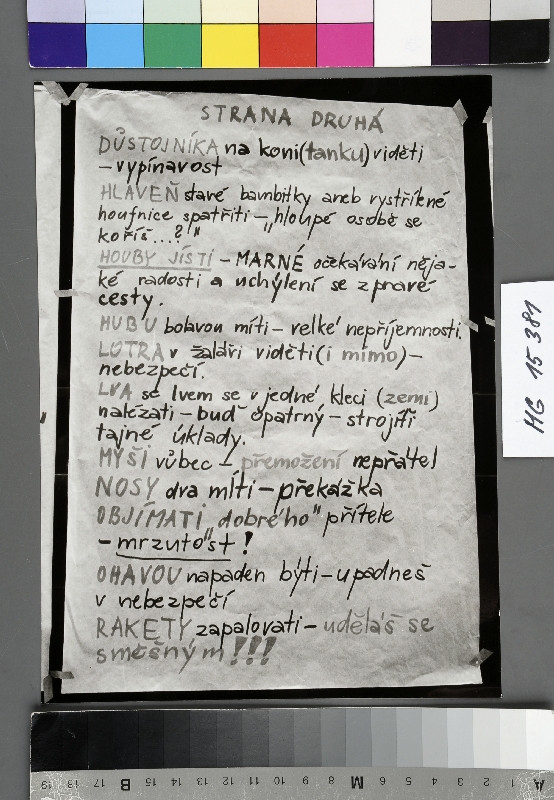 STRANA DRUHÁ
DŮSTOJNÍKA na koni (tanku) viděti
– vypínavost
HLAVEŇ staré bambitky aneb vystřílené
houfnice spatřiti – „hloupé osobě se
koříš...?"
HOUBY JÍSTI – MARNÉ očekávání něja-
ké radosti a uchýlení se z pravé
cesty.
HUBU bolavou míti – velké nepříjemnosti.
LOTRA v žaláři viděti (i mimo) –
nebezpečí.
LVA se lvem se v jedné kleci (zemi)
nalézati – buď opatrný – strojíť ti
tajné úklady.
MYŠI vůbec – přemožení nepřátel
NOSY dva míti – překážka
OBJÍMATI „dobrého" přítele
– mrzutost!
OHAVOU napaden býti – upadneš
v nebezpečí
RAKETY zapalovati – uděláš se
směšným!!!
HG 15 381
19 18 17 B 15 14 13 12 11 10 9 8 M 6 5 4 3 2 1 A